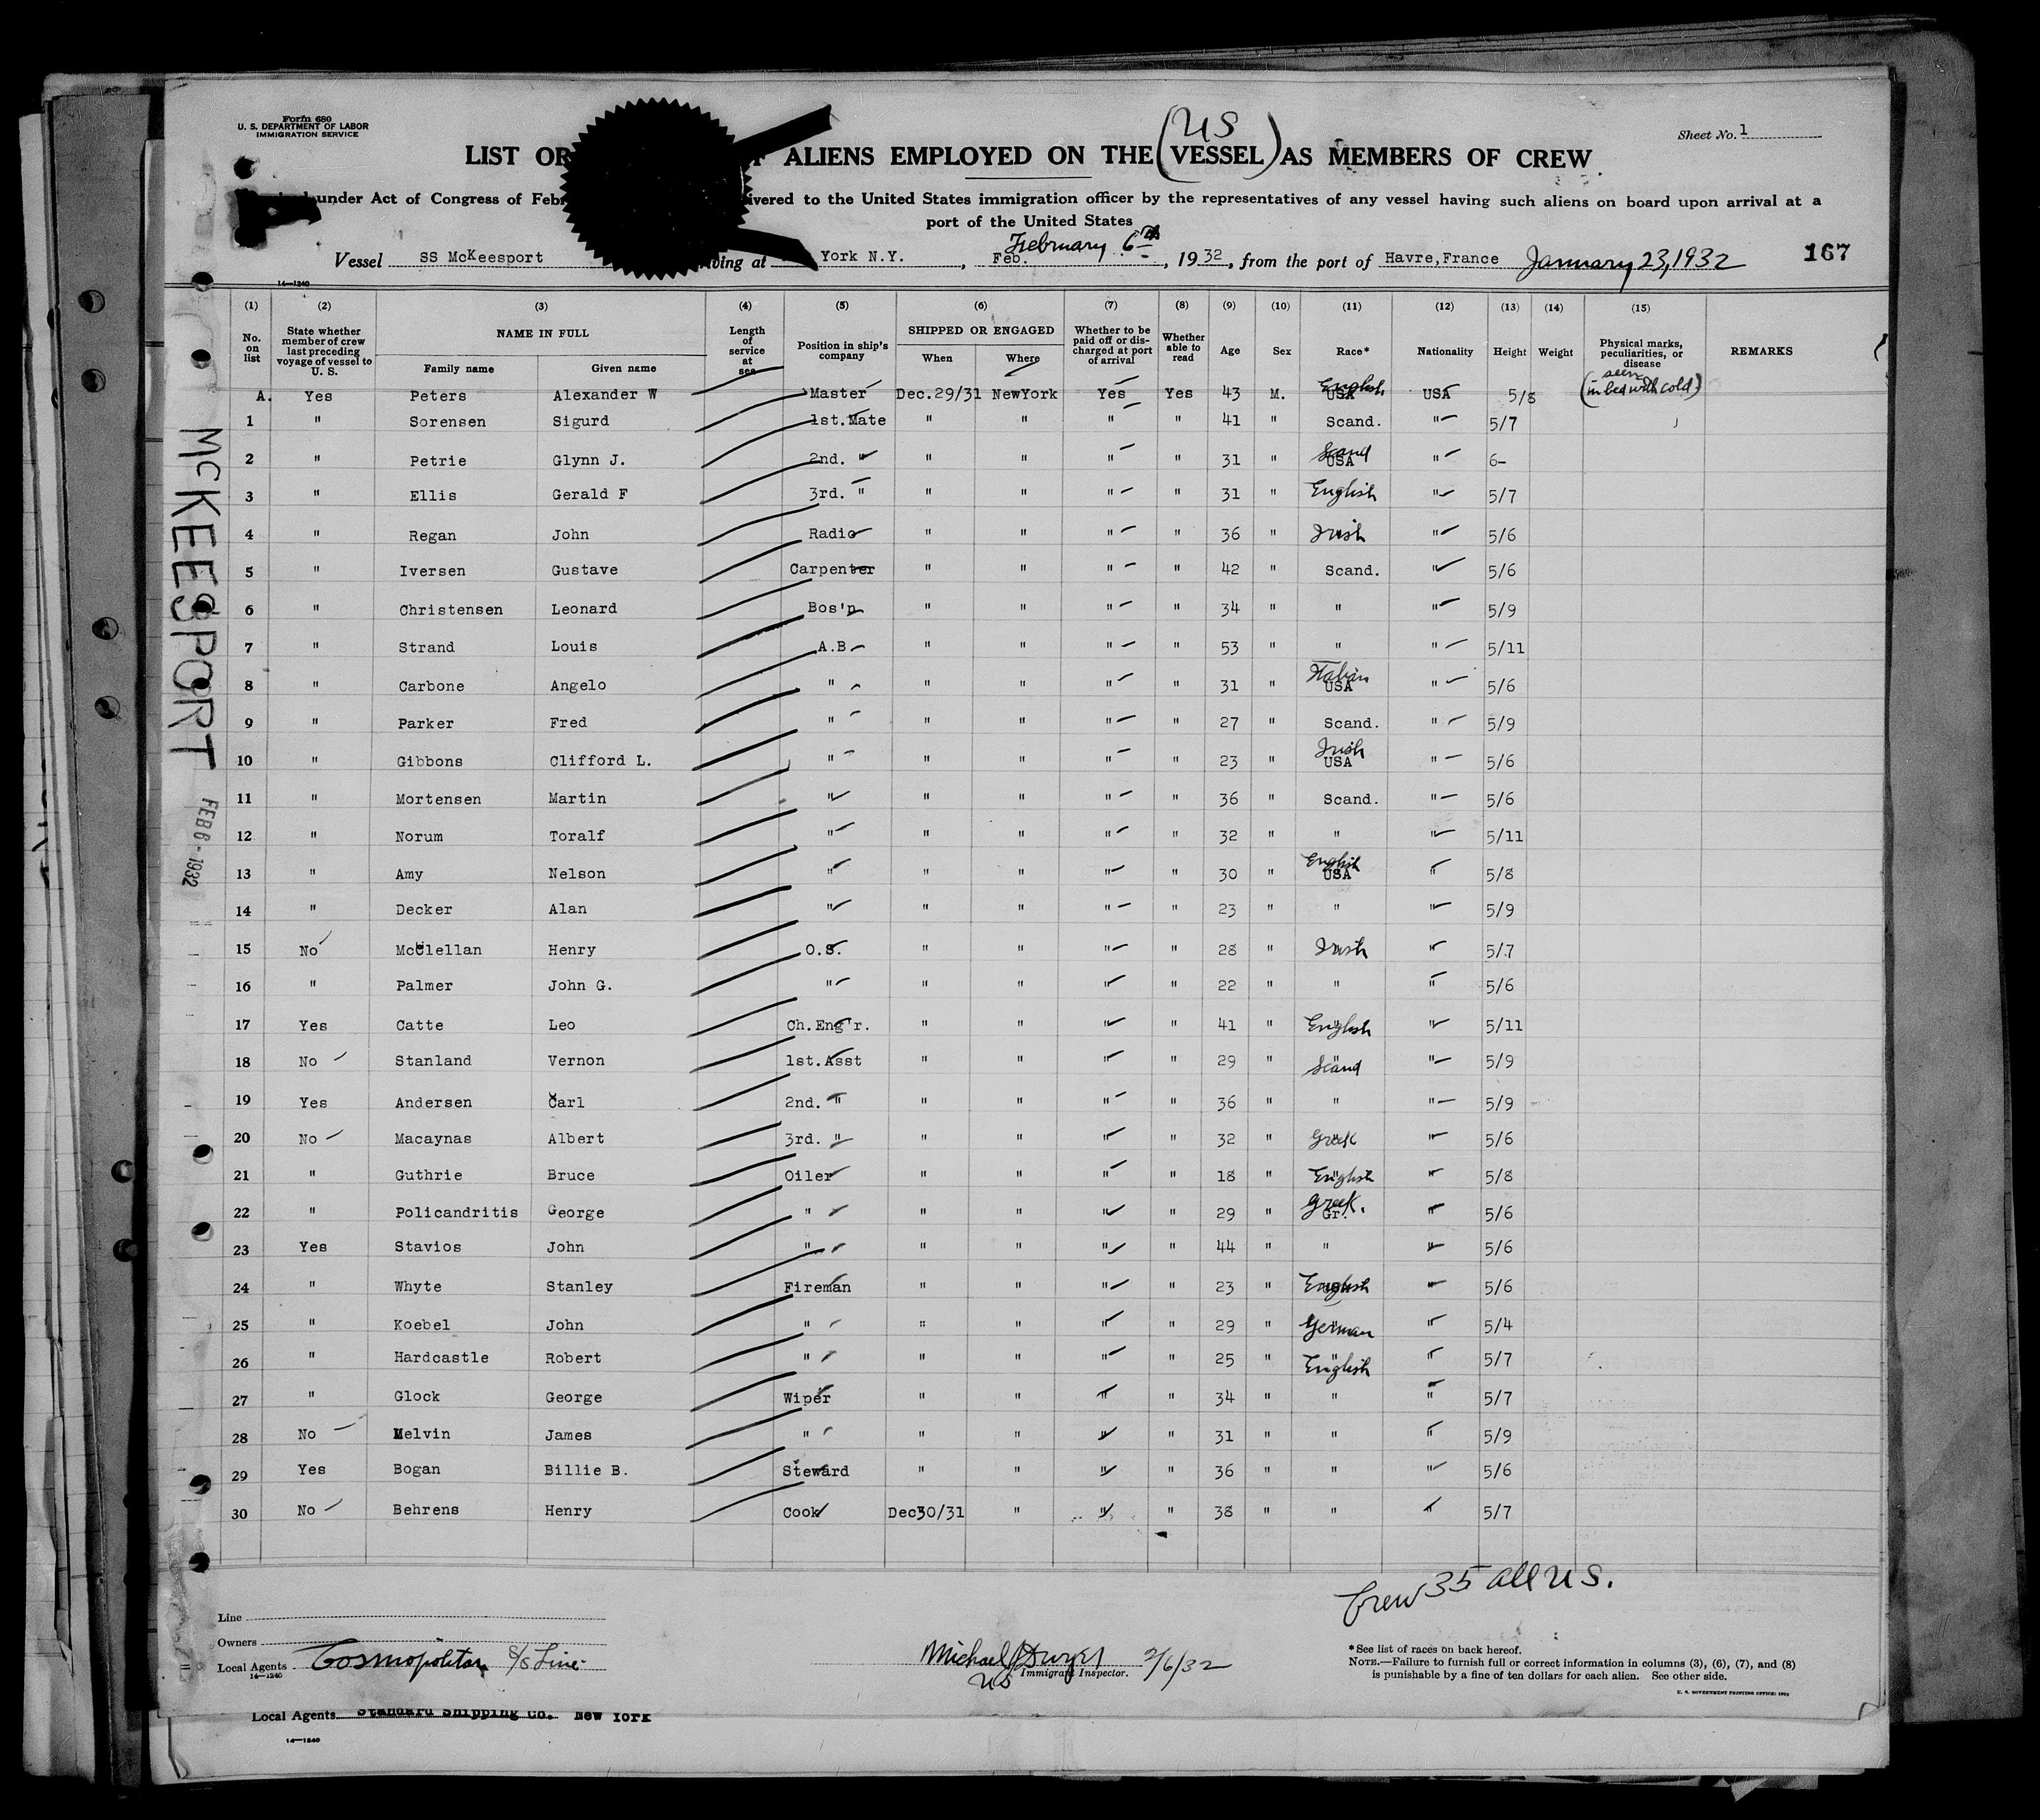 Form 680
U. S. DEPARTMENT OF LABOR
IMMIGRATION SERVICE
Sheet No. 1
(US)
LIST OR ALIENS EMPLOYED ON THE (VESSEL) AS MEMBERS OF CREW
under Act of Congress of Feb ivered to the United States immigration officer by the representatives of any vessel having such aliens on board upon arrival at a
port of the United States
February 6th
Vessel SS McKeesport ving at York N.Y. , Feb. , 1932, from the port of Havre,France January 23,1932 167
14—1240
(1) (2) (3) (4) (5) (6) (7) (8) (9) (10) (11) (12) (13) (14) (15)
No. on list | State whether member of crew last preceding voyage of vessel to U. S. | NAME IN FULL | Family name | Given name | Length of service at sea | Position in ship's company | SHIPPED OR ENGAGED | When | Where | Whether to be paid off or discharged at port of arrival | Whether able to read | Age | Sex | Race* | Nationality | Height | Weight | Physical marks, peculiarities, or disease | REMARKS
A. Yes Peters Alexander W Master Dec.29/31 NewYork Yes Yes 43 M. English USA USA 5/8 (seen in bed with cold)
1 " Sorensen Sigurd 1st.Mate " " " " 41 " Scand. " 5/7
2 " Petrie Glynn J. 2nd. " " " " " 31 " Scand USA " 6-
3 " Ellis Gerald F 3rd. " " " " " 31 " English " 5/7
4 " Regan John Radio " " " " 36 " Irish " 5/6
5 " Iversen Gustave Carpenter " " " " 42 " Scand. " 5/6
6 " Christensen Leonard Bos'n " " " " 34 " " " 5/9
7 " Strand Louis A.B " " " " 53 " " " 5/11
8 " Carbone Angelo " " " " " 31 " Italian USA " 5/6
9 " Parker Fred " " " " " 27 " Scand. " 5/9
10 " Gibbons Clifford L. " " " " " 23 " Irish USA " 5/6
11 " Mortensen Martin " " " " " 36 " Scand. " 5/6
12 " Norum Toralf " " " " " 32 " " " 5/11
13 " Amy Nelson " " " " " 30 " English USA " 5/8
14 " Decker Alan " " " " " 23 " " " 5/9
15 No McClellan Henry O.S. " " " " 28 " Irish " 5/7
16 " Palmer John G. " " " " " 22 " " " 5/6
17 Yes Catte Leo Ch.Eng'r. " " " " 41 " English " 5/11
18 No Stanland Vernon 1st.Asst " " " " 29 " Scand " 5/9
19 Yes Andersen Carl 2nd. " " " " " 36 " " " 5/9
20 No Macaynas Albert 3rd. " " " " " 32 " Greek " 5/6
21 " Guthrie Bruce Oiler " " " " 18 " English " 5/8
22 " Policandritis George " " " " " 29 " Greek. Gr. " 5/6
23 Yes Stavios John " " " " " 44 " " " 5/6
24 " Whyte Stanley Fireman " " " " 23 " English " 5/6
25 " Koebel John " " " " " 29 " German " 5/4
26 " Hardcastle Robert " " " " " 25 " English " 5/7
27 " Glock George Wiper " " " " 34 " " " 5/7
28 No Melvin James " " " " " 31 " " " 5/9
29 Yes Bogan Billie B. Steward " " " " 36 " " " 5/6
30 No Behrens Henry Cook Dec30/31 " " " 38 " " " 5/7
McKEESPORT
FEB 6 - 1932
Crew 35 all U S.
Line
Owners
Local Agents Cosmopolitan S/S Line
14—1240
Michael J Dwyer 2/6/32
US Immigrant Inspector.
*See list of races on back hereof.
NOTE.—Failure to furnish full or correct information in columns (3), (6), (7), and (8)
is punishable by a fine of ten dollars for each alien. See other side.
U. S. GOVERNMENT PRINTING OFFICE:
Local Agents Standard Shipping Co. New York
14—1240